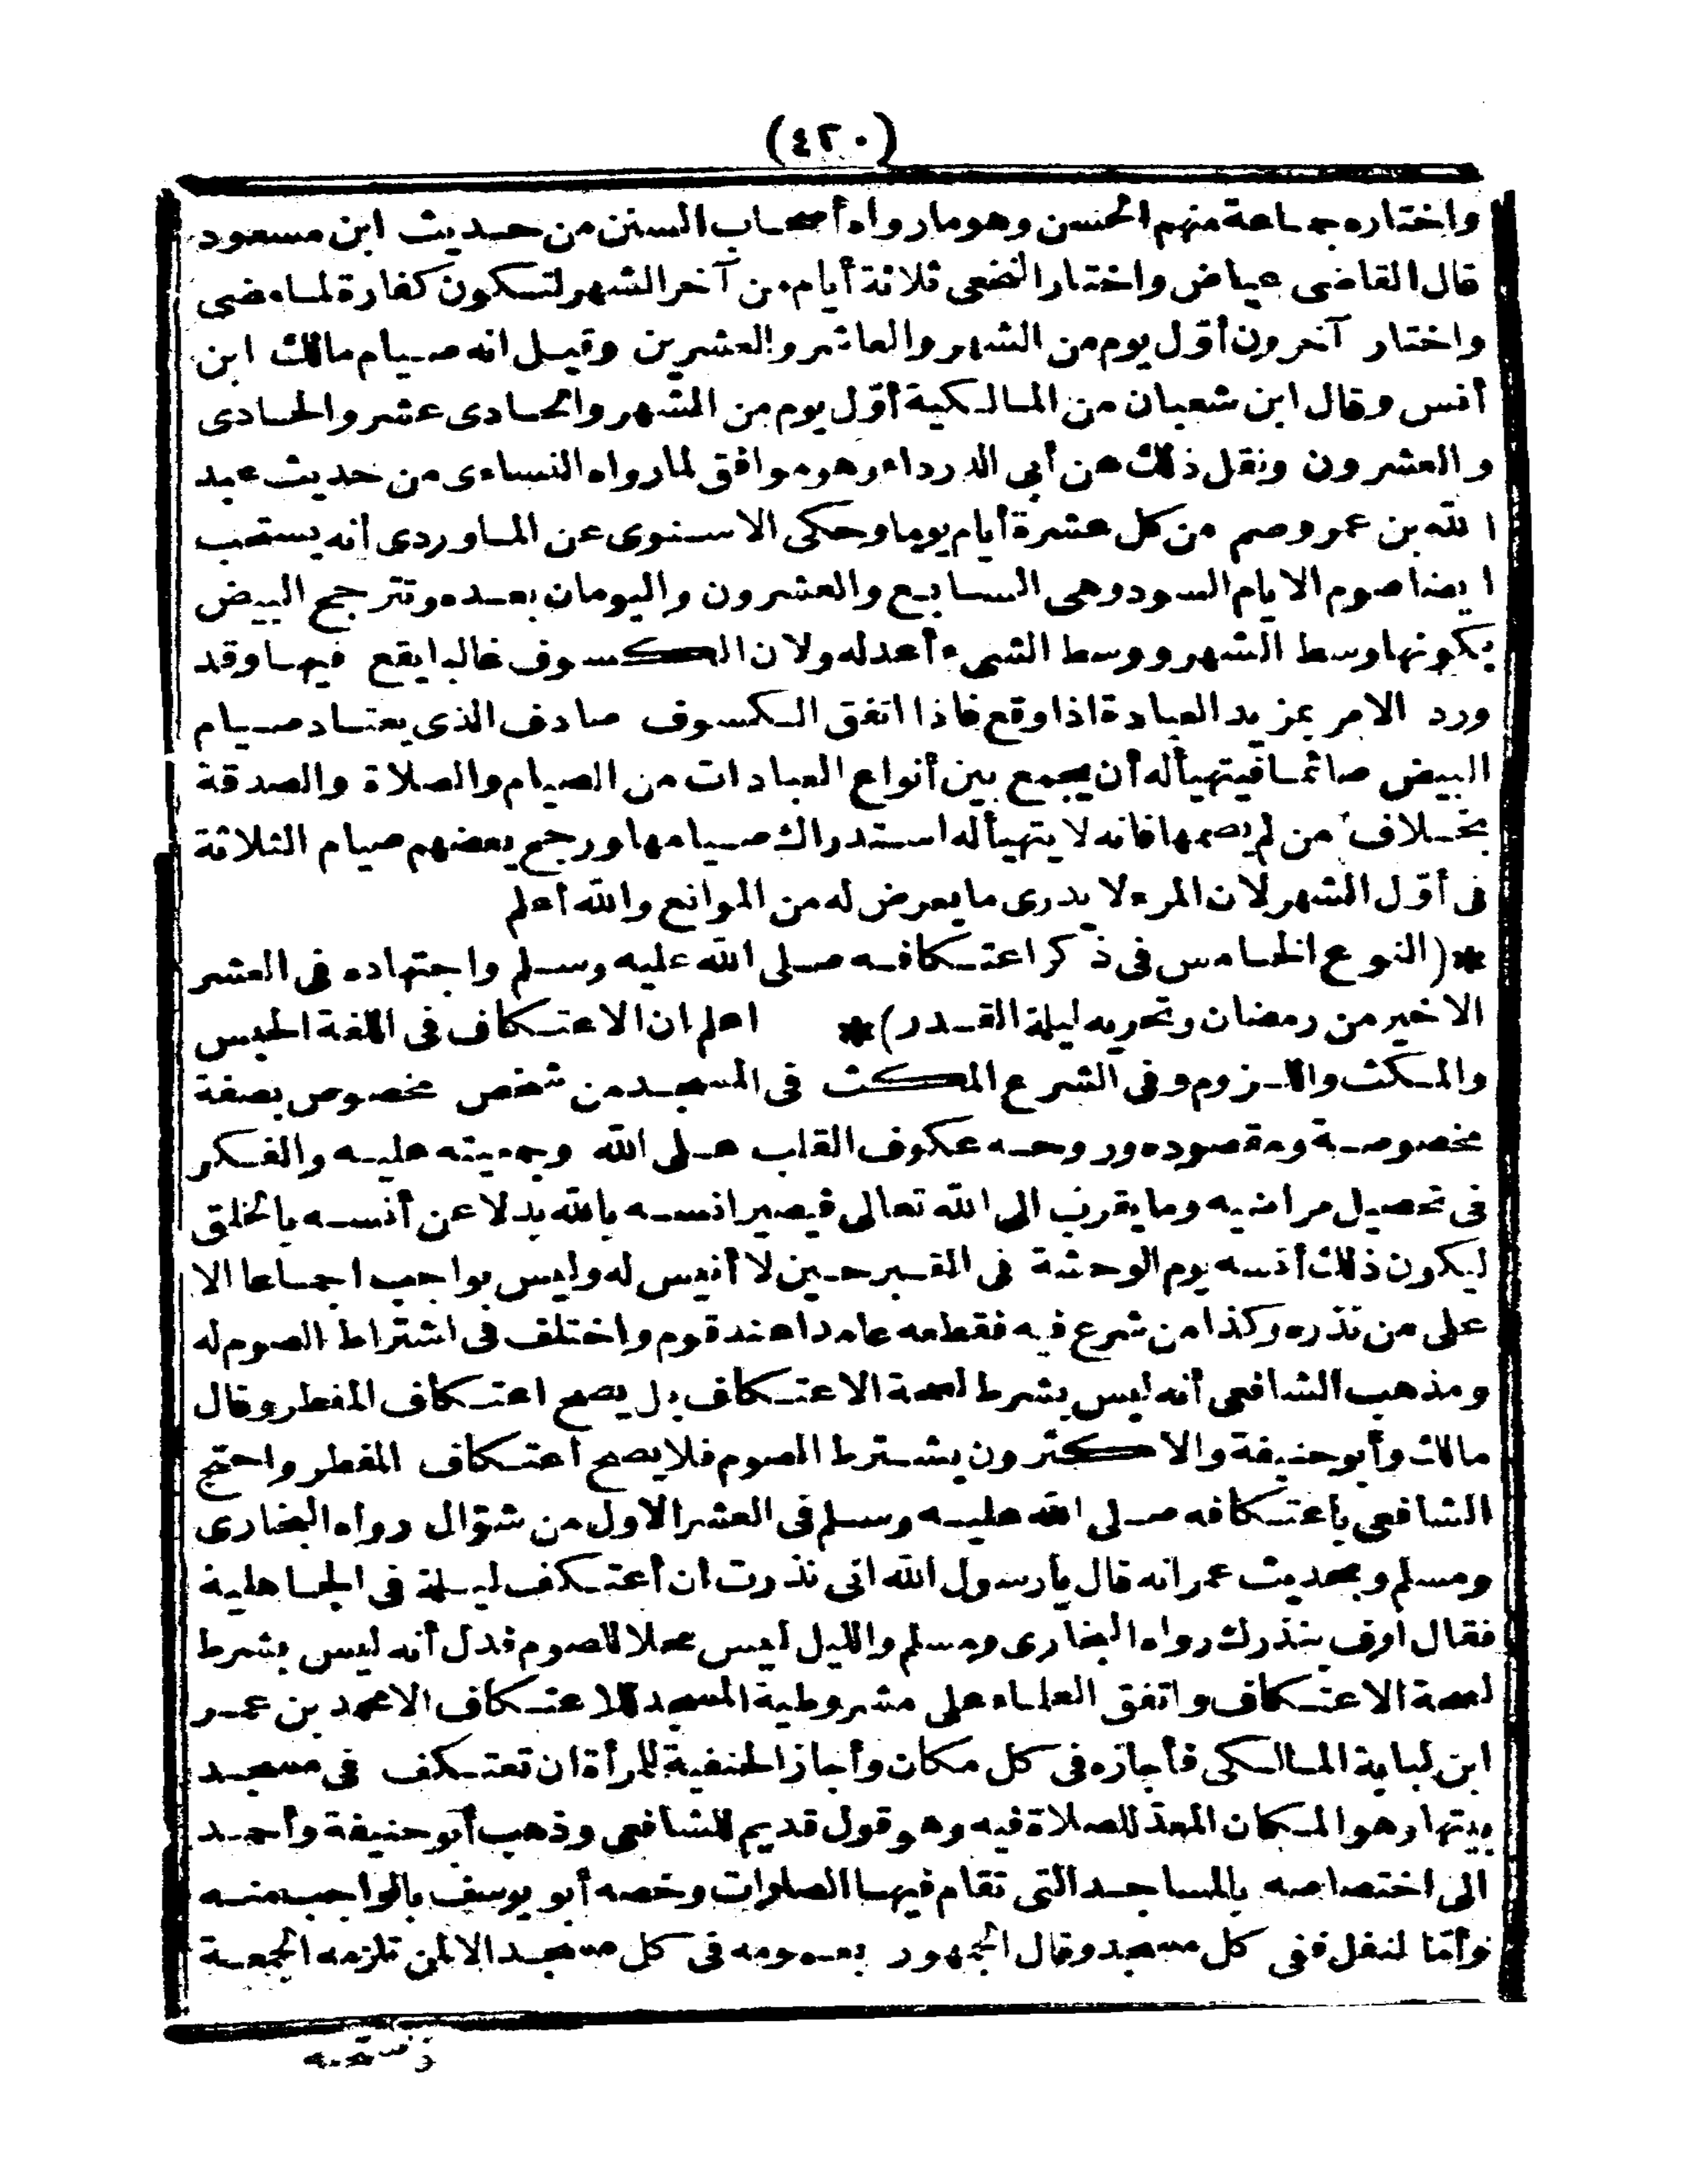 (٤٢٠)
واختاره جماعة منهم الحسن وهو ما رواه أصحاب السنن من حديث ابن مسعود
قال القاضى عياض واختار النخعى ثلاثة أيام من آخر الشهر لتكون كفارة لما مضى
واختار آخرون أوّل يوم من الشهر والعاشر والعشرين وقيل انه صيام مالك ابن
أنس وقال ابن شعبان من المالكية أوّل يوم من الشهر والحادى عشر والحادى
والعشرون ونقل ذلك عن أبى الدرداء وهو موافق لما رواه النساءى من حديث عبد
الله بن عمرو صم من كل عشرة أيام يوما وحكى الاسنوى عن الماوردى أنه يستحب
ايضا صوم الايام السود وهى السابع والعشرون واليومان بعده وتترجح البيض
بكونها وسط الشهر ووسط الشىء أعدله ولان الكسوف غالبا يقع فيها وقد
ورد الامر بمزيد العبادة اذا وقع فاذا اتفق الكسوف صادف الذى يعتاد صيام
البيض صائما فيتهيأ له أن يجمع بين أنواع العبادات من الصيام والصلاة والصدقة
بخلاف من لم يصمها فانه لا يتهيأ له استدراك صيامها ورجح بعضهم صيام الثلاثة
فى أوّل الشهر لان المرء لا يدرى ما يعرض له من الموانع والله أعلم
*(النوع الخامس فى ذكر اعتكافه صلى الله عليه وسلم واجتهاده فى العشر
الاخير من رمضان وتحريه ليلة القدر)* اعلم ان الاعتكاف فى اللغة الحبس
والمكث واللزوم وفى الشرع المكث فى المسجد من شخص مخصوص بصفة
مخصوصة ومقصوده وروحه عكوف القلب على الله وجمعيته عليه والفكر
فى تحصيل مراضيه وما يقرب الى الله تعالى فيصير انسه بالله بدلا عن أنسه بالخلق
ليكون ذلك أنسه يوم الوحشة فى القبر حين لا أنيس له وليس بواجب اجماعا الا
على من نذره وكذا من شرع فيه فقطعه عامدا عند قوم واختلف فى اشتراط الصوم له
ومذهب الشافعى أنه ليس بشرط لصحة الاعتكاف بل يصح اعتكاف المفطر وقال
مالك وأبو حنيفة والاكثرون يشترط الصوم فلا يصح اعتكاف المفطر واحتج
الشافعى باعتكافه صلى الله عليه وسلم فى العشر الاول من شوّال رواه البخارى
ومسلم وبحديث عمر انه قال يا رسول الله انى نذرت ان أعتكف ليلة فى الجاهلية
فقال أوف بنذرك رواه البخارى ومسلم والليل ليس محلا للصوم فدل أنه ليس بشرط
لصحة الاعتكاف واتفق العلماء على مشروطية المسجد للاعتكاف الا محمد بن عمر
ابن لبابة المالكى فأجازه فى كل مكان وأجاز الحنفية للمرأة ان تعتكف فى مسجد
بيتها وهو المكان المعدّ للصلاة فيه وهو قول قديم للشافعى وذهب أبو حنيفة وأحمد
الى اختصاصه بالمساجد التى تقام فيها الصلوات وخصه أبو يوسف بالواجب منه
وأمّا لنفل ففى كل مسجد وقال الجمهور بعمومه فى كل مسجد الا لمن تلزمه الجمعة